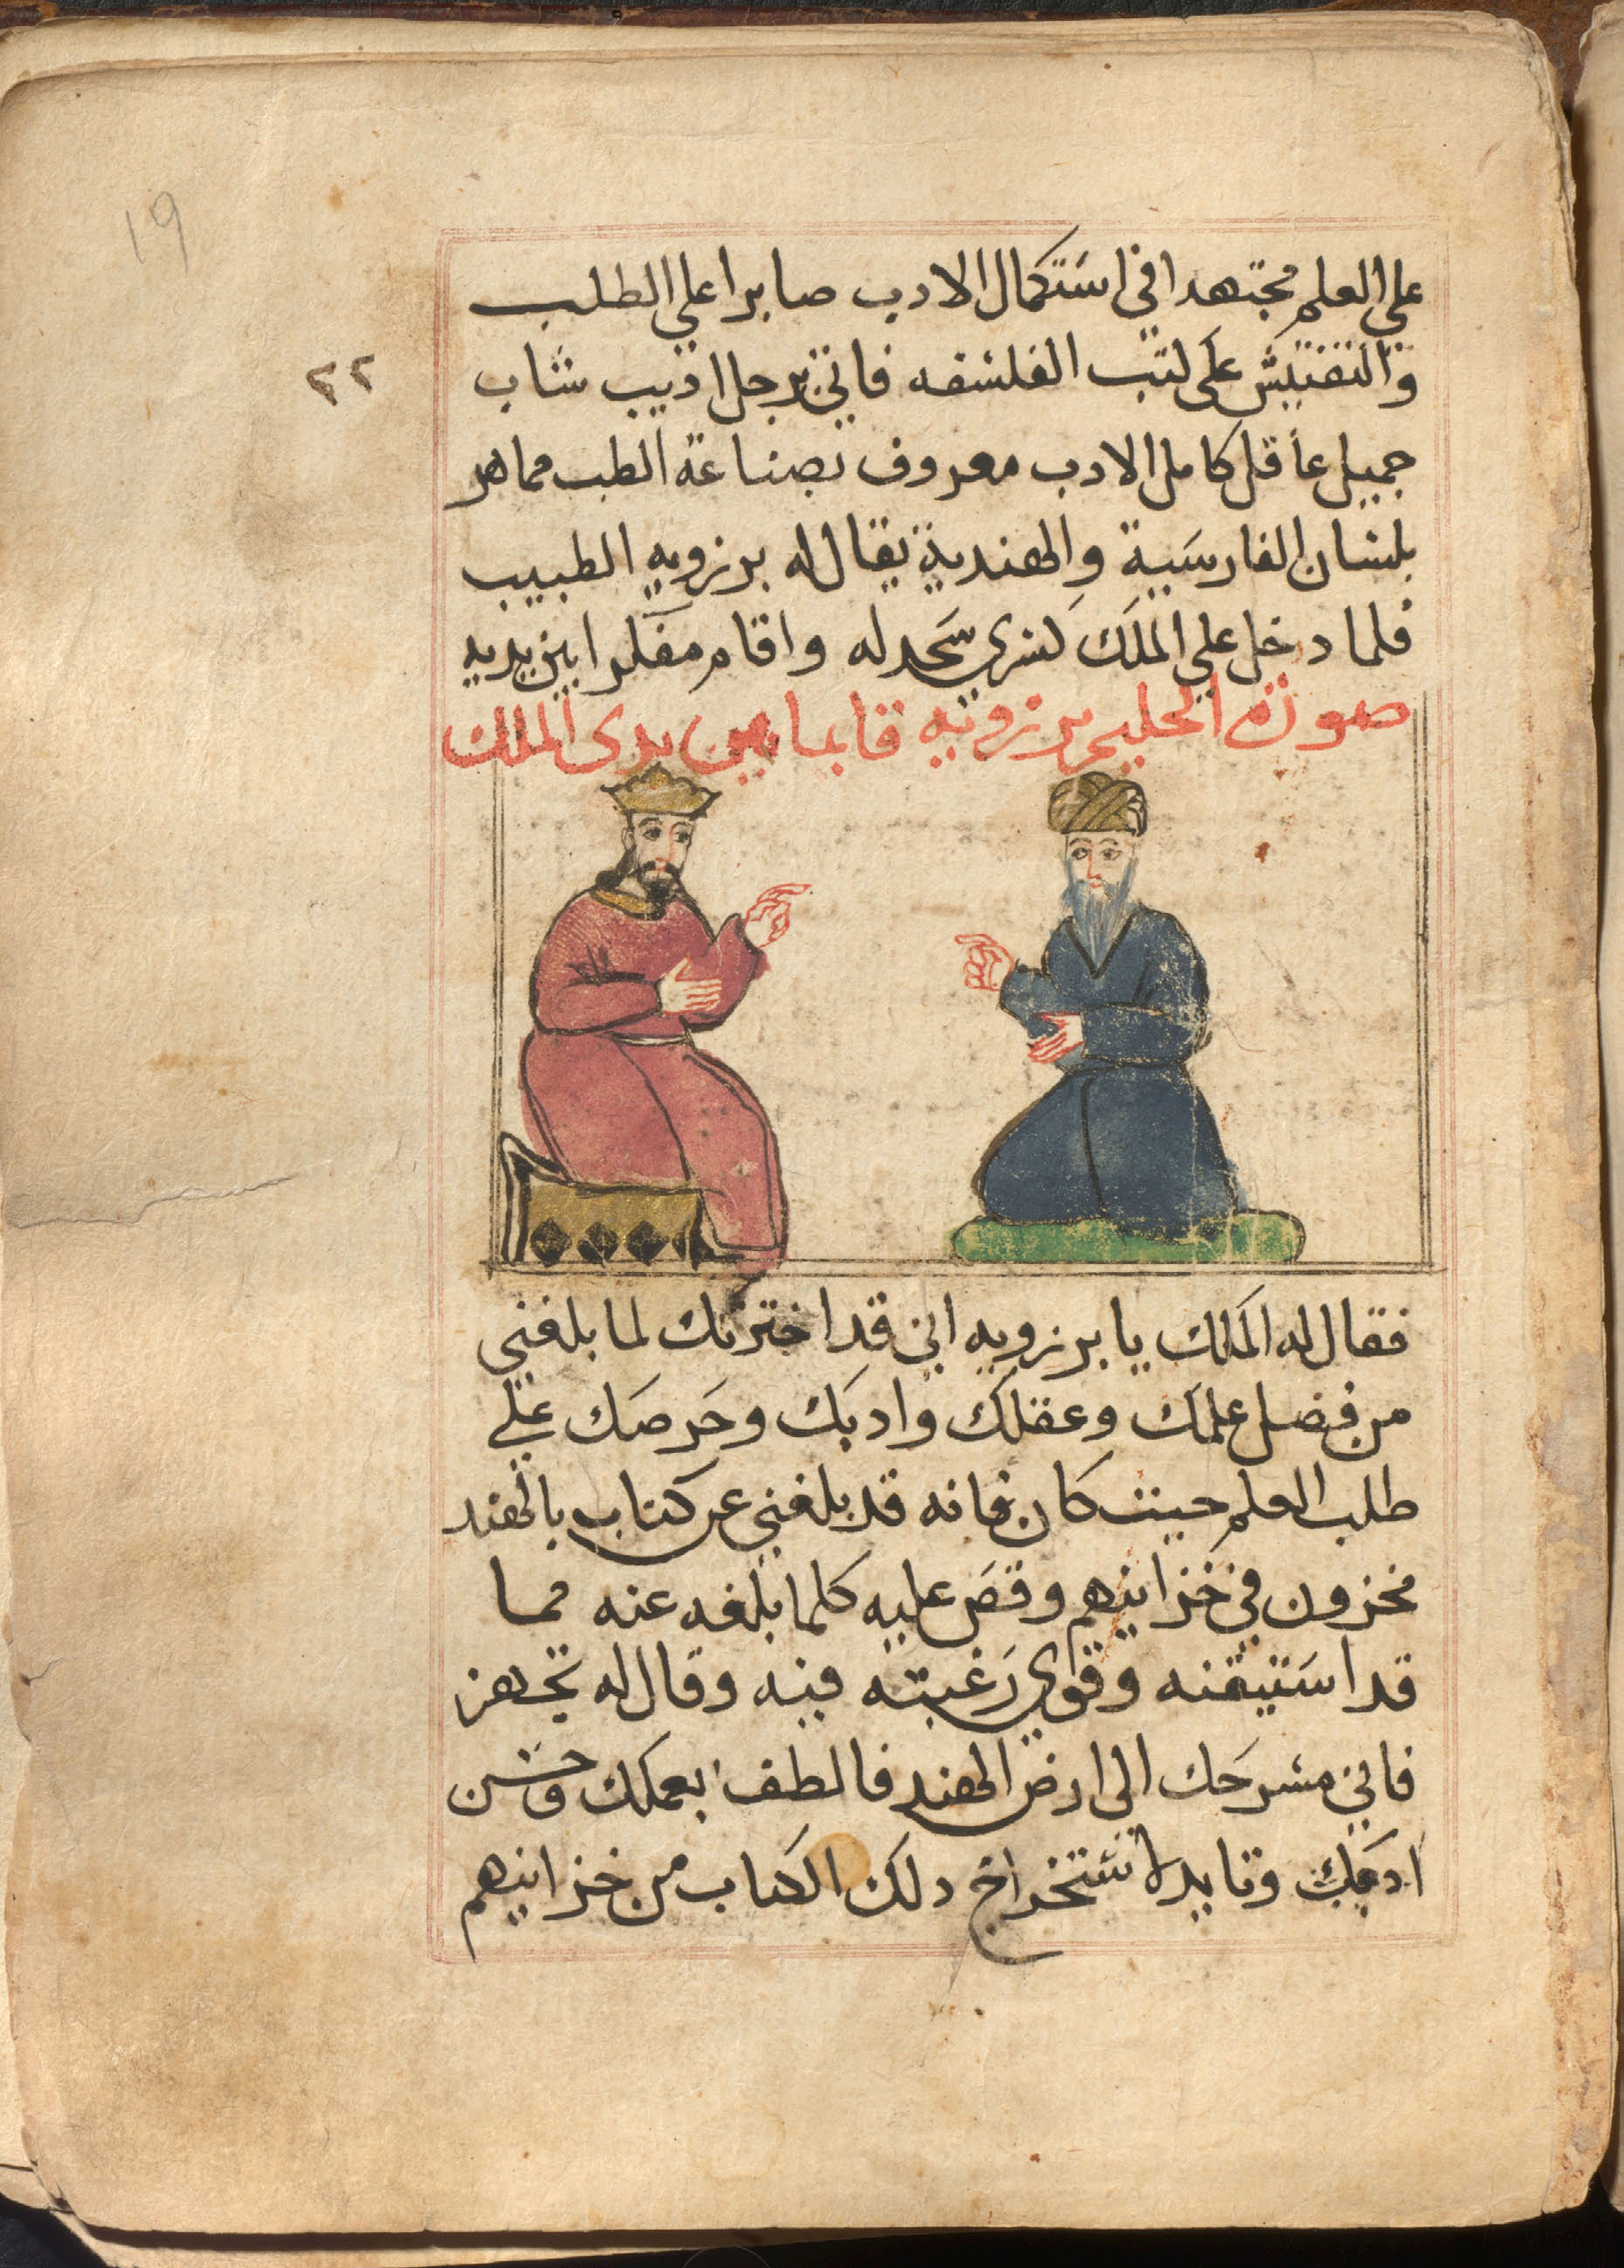 19
٢٢
علي العلم مجتهدا في استكمال الادب صابرا علي الطلب
والتفتيش على كتب الفلسفه فاتي برجل اديب شاب
جميل عاقل كامل الادب معروف بصناعة الطب مماهر
بلسان الفارسية والهندية يقال له برزويه الطبيب
فلما دخل علي الملك كسري سجد له واقام مفكرا بين يديه
صورة الحليم برزويه قايما بين يدى الملك
فقال له الملك يا برزويه اني قد اخترتك لما بلغني
من فضل علمك وعقلك وادبك وحرصك علي
طلب العلم حيث كان فانه قد بلغني عن كتاب بالهند
مخزون في خزاينهم وقص عليه كلما بلغه عنه مما
قد استيقنه وقوي رغبته فيه وقال له تجهز
فاني مسرحك الى ارض الهند فالطف بعملك وحسن
ادبك وتايد لاستخراج دلك الكتاب من خزاينهم